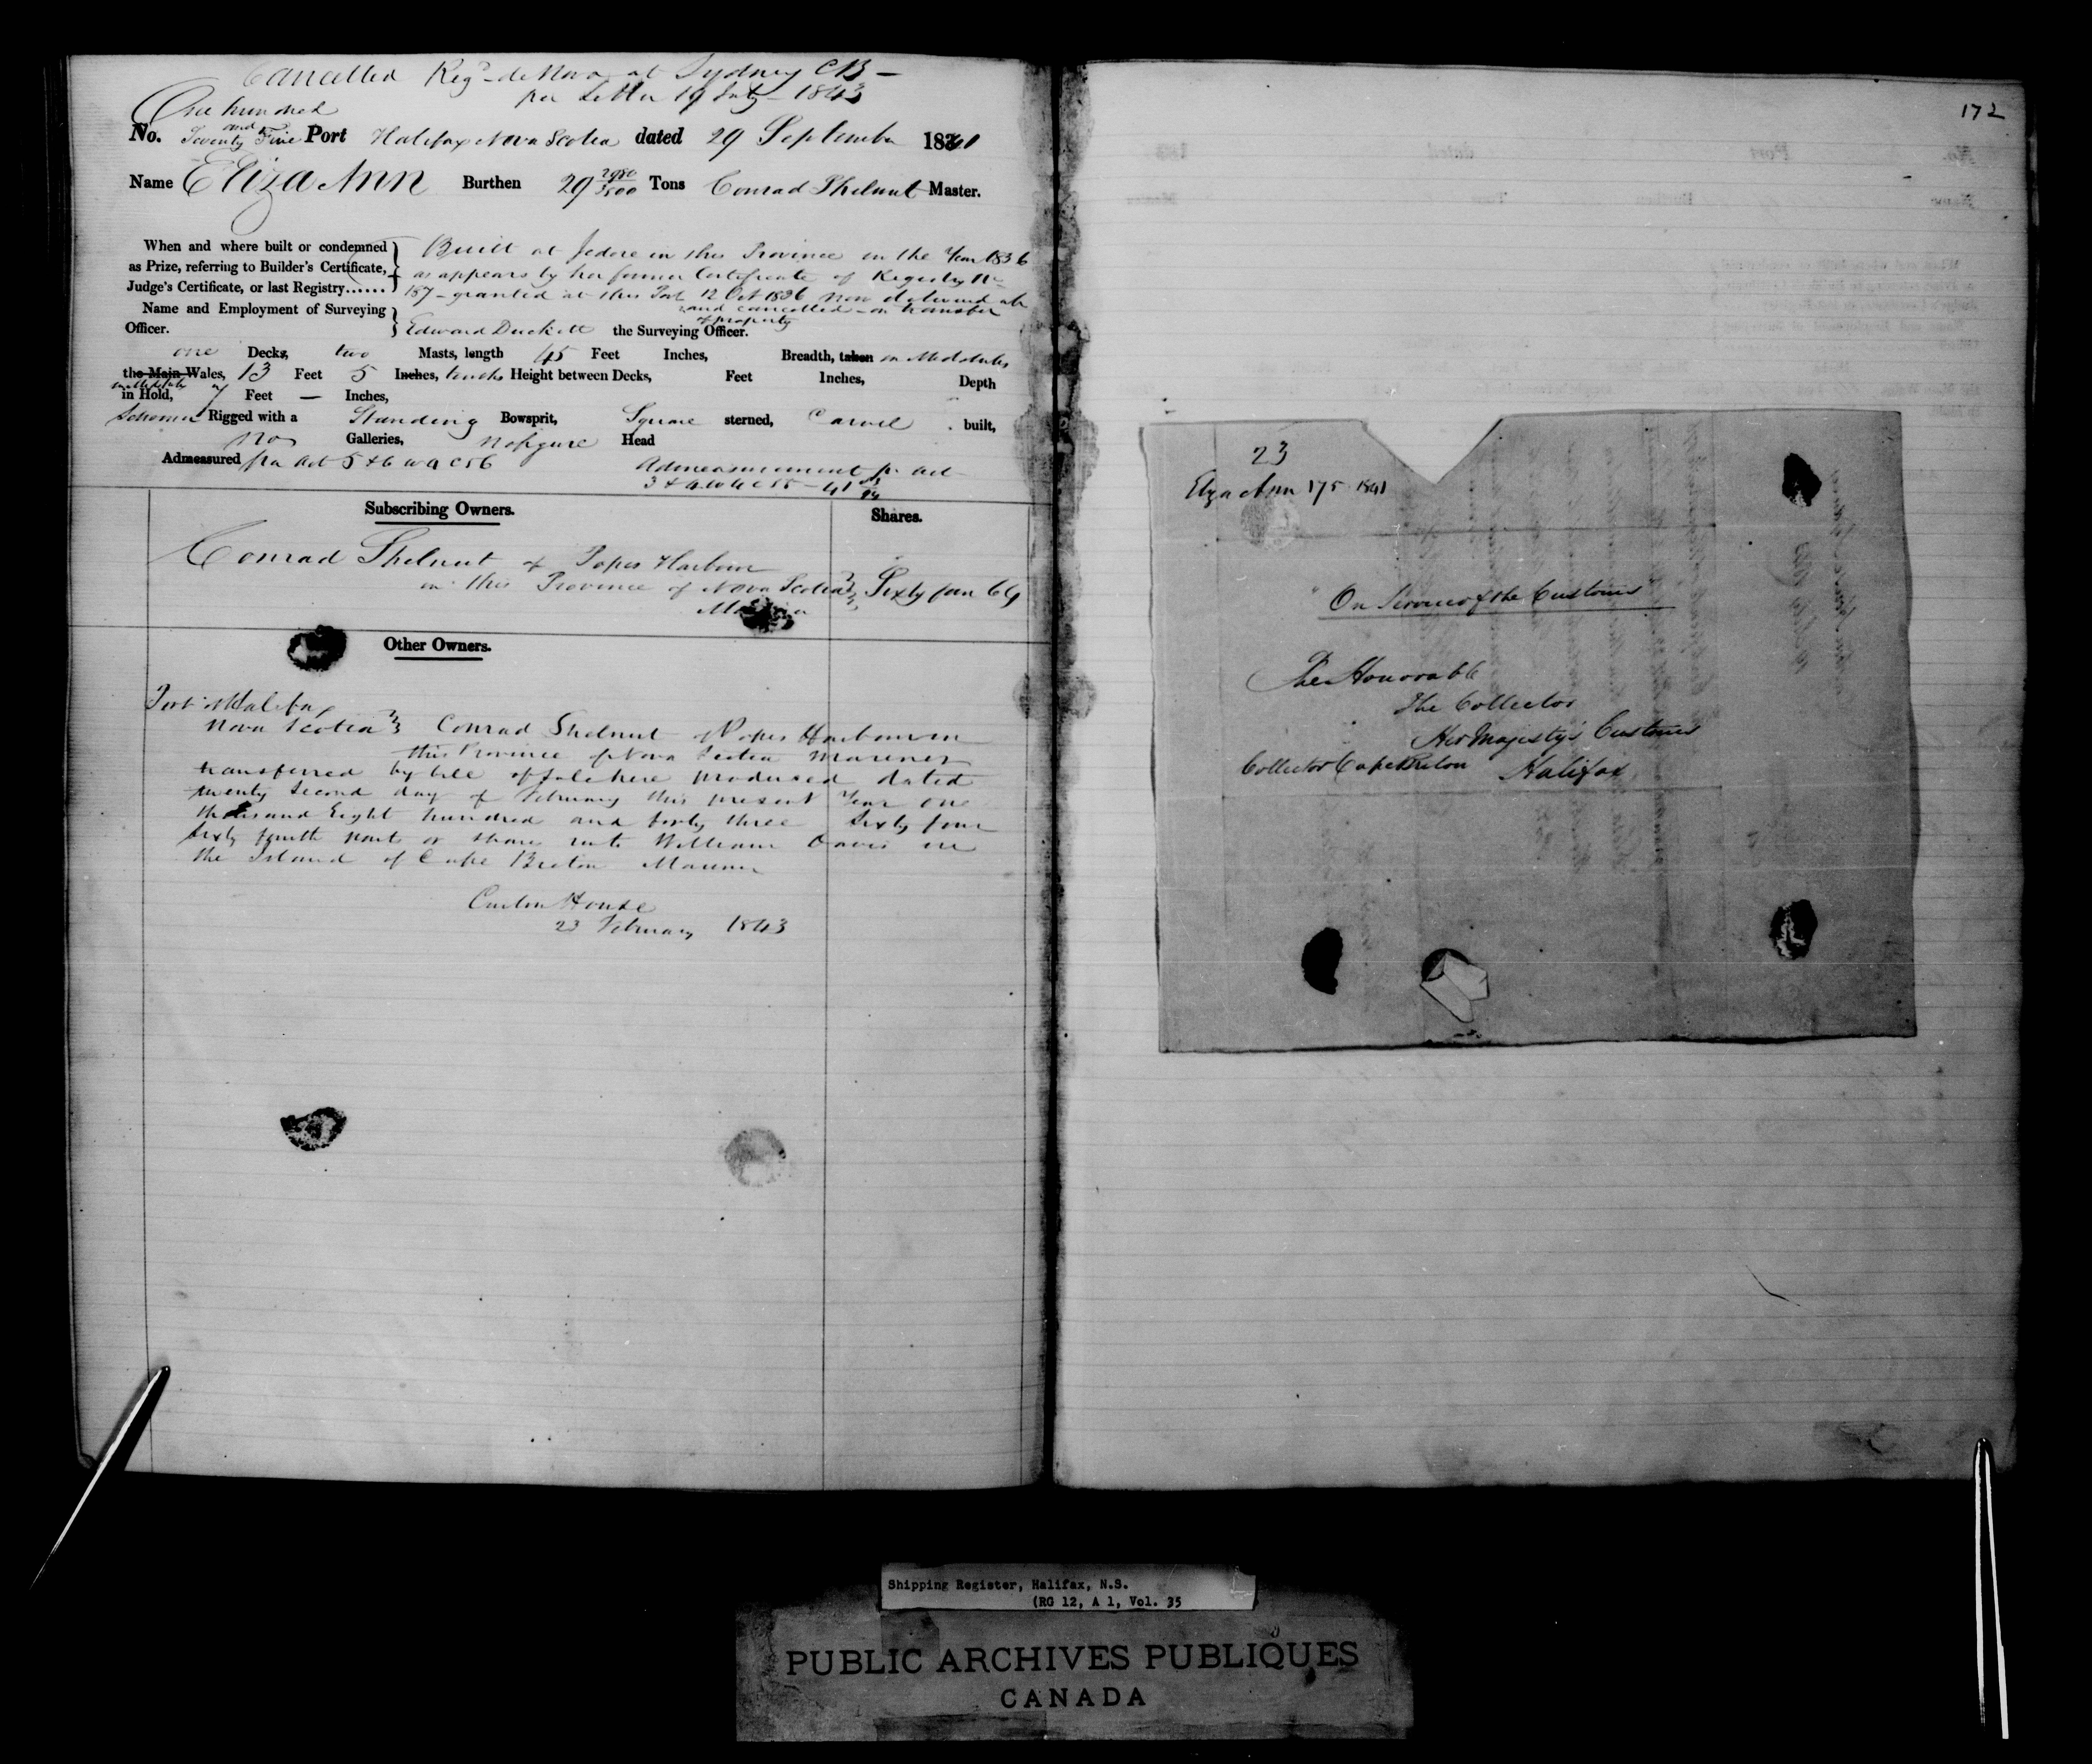 Cancelled Regd de Novo at Sydney CB -
per Letter 19 July - 1843
One hundred
and
No. Seventy Five Port Halifax Nova Scotia dated 29 September 1841
Name Eliza Ann Burthen 29 2980/3500 Tons Conrad Shelnut Master.
When and where built or condemned
as Prize, referring to Builder's Certificate,
Judge's Certificate, or last Registry......
Built at Jedore in this Province in the Year 1836
as appears by her former Certificate of Registry No
187 - granted at this Port 12 Oct 1836 now delivered up
and cancelled - on transfer
of property
Name and Employment of Surveying
Officer.
Edward Duckett the Surveying Officer.
one Decks, two Masts, length 45 Feet Inches, Breadth, taken in Midships
the Main Wales, 13 Feet 5 Inches, tenths Height between Decks, Feet Inches, Depth
in Hold, 7 Feet — Inches,
Schooner Rigged with a Standing Bowsprit, Square sterned, Carvel built,
no Galleries, no figure Head
Admeasured per Act 5 & 6 W 4 C 56
Admeasurement pr Act
3 & 4 W 4 C 55 - 41
Subscribing Owners. Shares.
Conrad Shelnut of Popes Harbour
in this Province of Nova Scotia Sixty four 64
Mariner
Other Owners.
Port Halifax
Nova Scotia Conrad Shelnut of Popes Harbour in
this Province of Nova Scotia Mariner
transferred by bill of sale here produced dated
twenty second day of February this present Year one
thousand Eight hundred and forty three Sixty four
sixty fourth parts or shares unto William Davis in
the Island of Cape Breton Mariner
Custom House
23 February 1843
172
23
Eliza Ann 175 1841
On Service of the Customs
The Honorable
The Collector
Her Majesty's Customs
Collector Cape Breton Halifax
Shipping Register, Halifax, N.S.
(RG 12, A 1, Vol. 35
PUBLIC ARCHIVES PUBLIQUES
CANADA